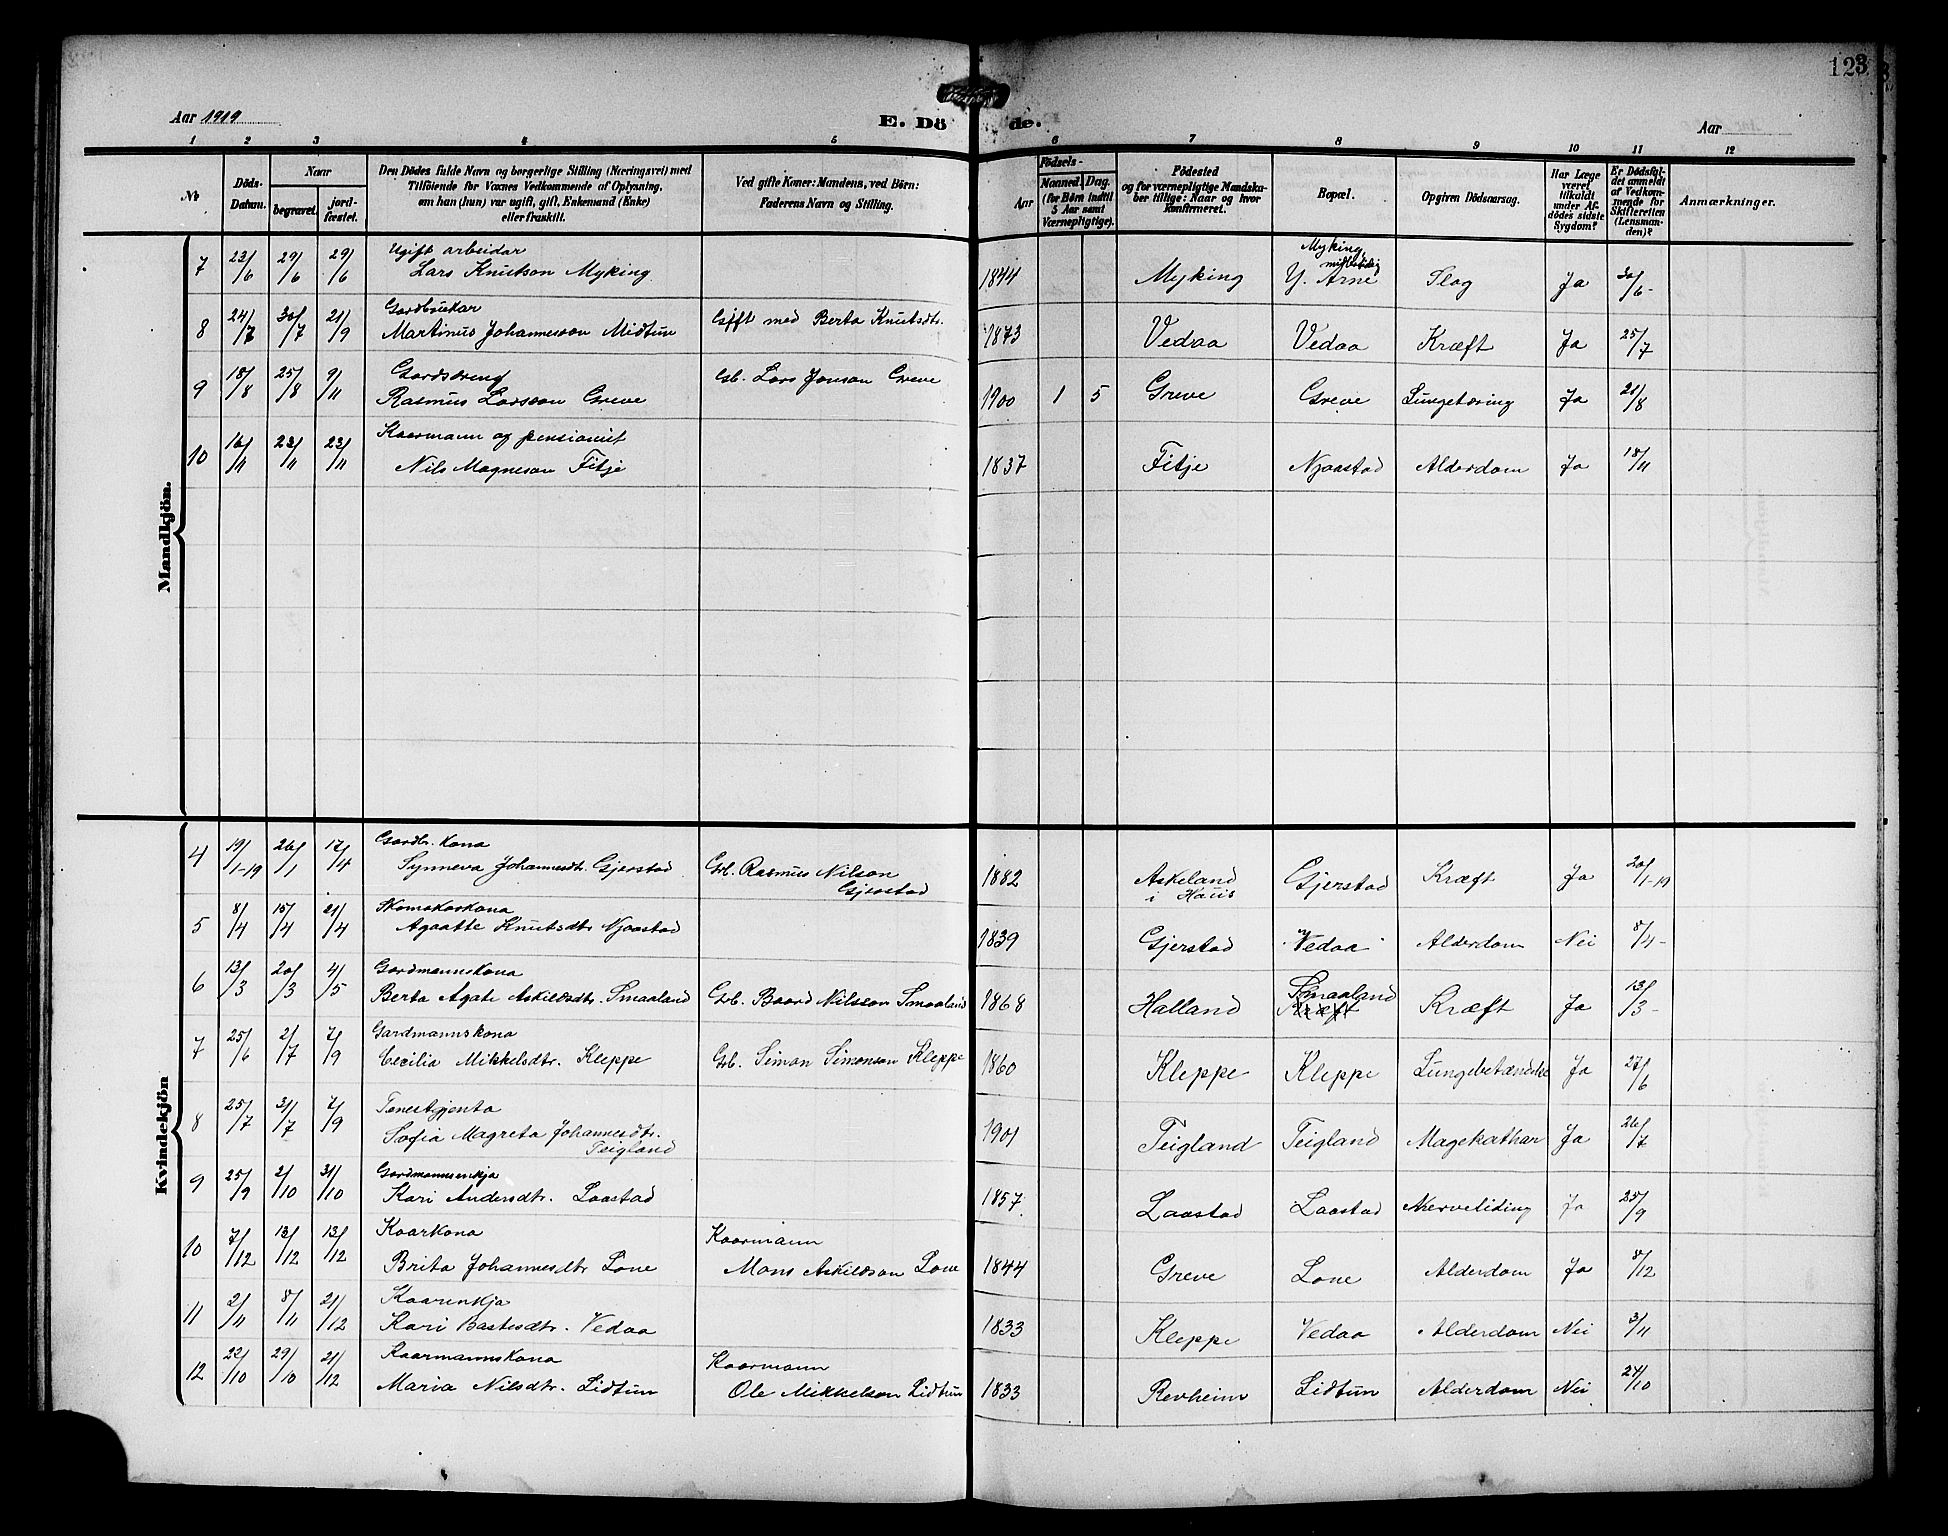 123
Aar 1919
E. Dö de.
Aar
1 2 3 4 5 6 7 8 9 10 11 12
№
Döds-Datum.
Naar
begravet.
jord-fæstet.
Den Dödes fulde Navn og borgerlige Stilling (Næringsvei) med
Tilföiende for Voxnes Vedkommende af Oplysning,
om han (hun) var ugift, gift, Enkemand (Enke)
eller fraskilt.
Ved gifte Koner: Mandens, ved Börn:
Faderens Navn og Stilling.
Födsels-
Aar
Maaned. Dag.
(for Börn indtil
5 Aar samt
Værnepligtige).
Födested
og for værnepligtige Mandska-
ber tillige: Naar og hvor
Konfirmeret.
Bopæl.
Opgiven Dödsaarsag.
Har Læge
været
tilkaldt
under Af-
dödes sidste
Sygdom?
Er Dödsfal-
det anmeldt
af Vedkom-
mende for
Skifteretten
(Lensman-
den)?
Anmærkninger.
Mandkjön.
7 23/6 29/6 29/6 Ugift arbeidar
Lars Knutson Myking 1844 Myking Myking Y. Arne Slag Ja 30/6-
8 24/7 30/7 21/9 Gardbrukar
Martinus Johannesson Midtun Gift med Berta Knutsdtr. 1873 Vedaa Vedaa Kræft Ja 25/7
9 18/8 25/8 9/11 Gardsdreng
Rasmus Larsson Greve Gb. Lars Jonson Greve 1900 1 5 Greve Greve Lungetæring Ja 21/8
10 16/11 23/11 23/11 Kaarmann og pensionist
Nils Magneson Fitje 1837 Fitje Njaastad Alderdom Ja 18/11
Kvindekjön
4 19/1-19 26/1 17/4 Gardbr. kona
Synneva Johannesdtr. Gjerstad Grb. Rasmus Nilson
Gjerstad 1882 Askeland
i Haus Gjerstad Kræft Ja 20/1-19
5 8/4 15/4 21/4 Skomakarkona
Agaatte Knutsdtr Njaastad 1839 Gjerstad Vedaa Alderdom Nei 8/4-
6 13/3 20/3 4/5 Gardmannskona
Berta Agate Askildsdtr. Smaaland Grb. Baard Nilsson Smaaland 1868 Halland Smaaland
Kræft Kræft Ja 13/3-
7 25/6 2/7 7/9 Gardmannskona
Cecilia Mikkelsdtr. Kleppe Grb. Simon Simonson Kleppe 1860 Kleppe Kleppe Lungebetændelse Ja 27/6
8 25/7 31/7 7/9 Tenestgjenta
Sofia Magreta Johannesdtr.
Teigland 1901 Teigland Teigland Magekathar Ja 26/7
9 25/9 2/10 31/10 Gardmannsenkja
Kari Andersdtr. Laastad 1857 Laastad Laastad Nerveliding Ja 25/9
10 7/12 13/12 13/12 Kaarkona
Brita Johannesdtr Lone Kaarmann
Mons Askildson Lone 1844 Greve Lone Alderdom Ja 8/12
11 2/11 8/11 21/12 Kaarenkja
Kari Bastesdtr. Vedaa 1833 Kleppe Vedaa Alderdom Nei 3/11
12 22/10 29/10 21/12 Kaarmannskona
Maria Nilsdtr. Lidtun Kaarmann
Ole Mikkelson Lidtun 1833 Revheim Lidtun Alderdom Nei 24/10